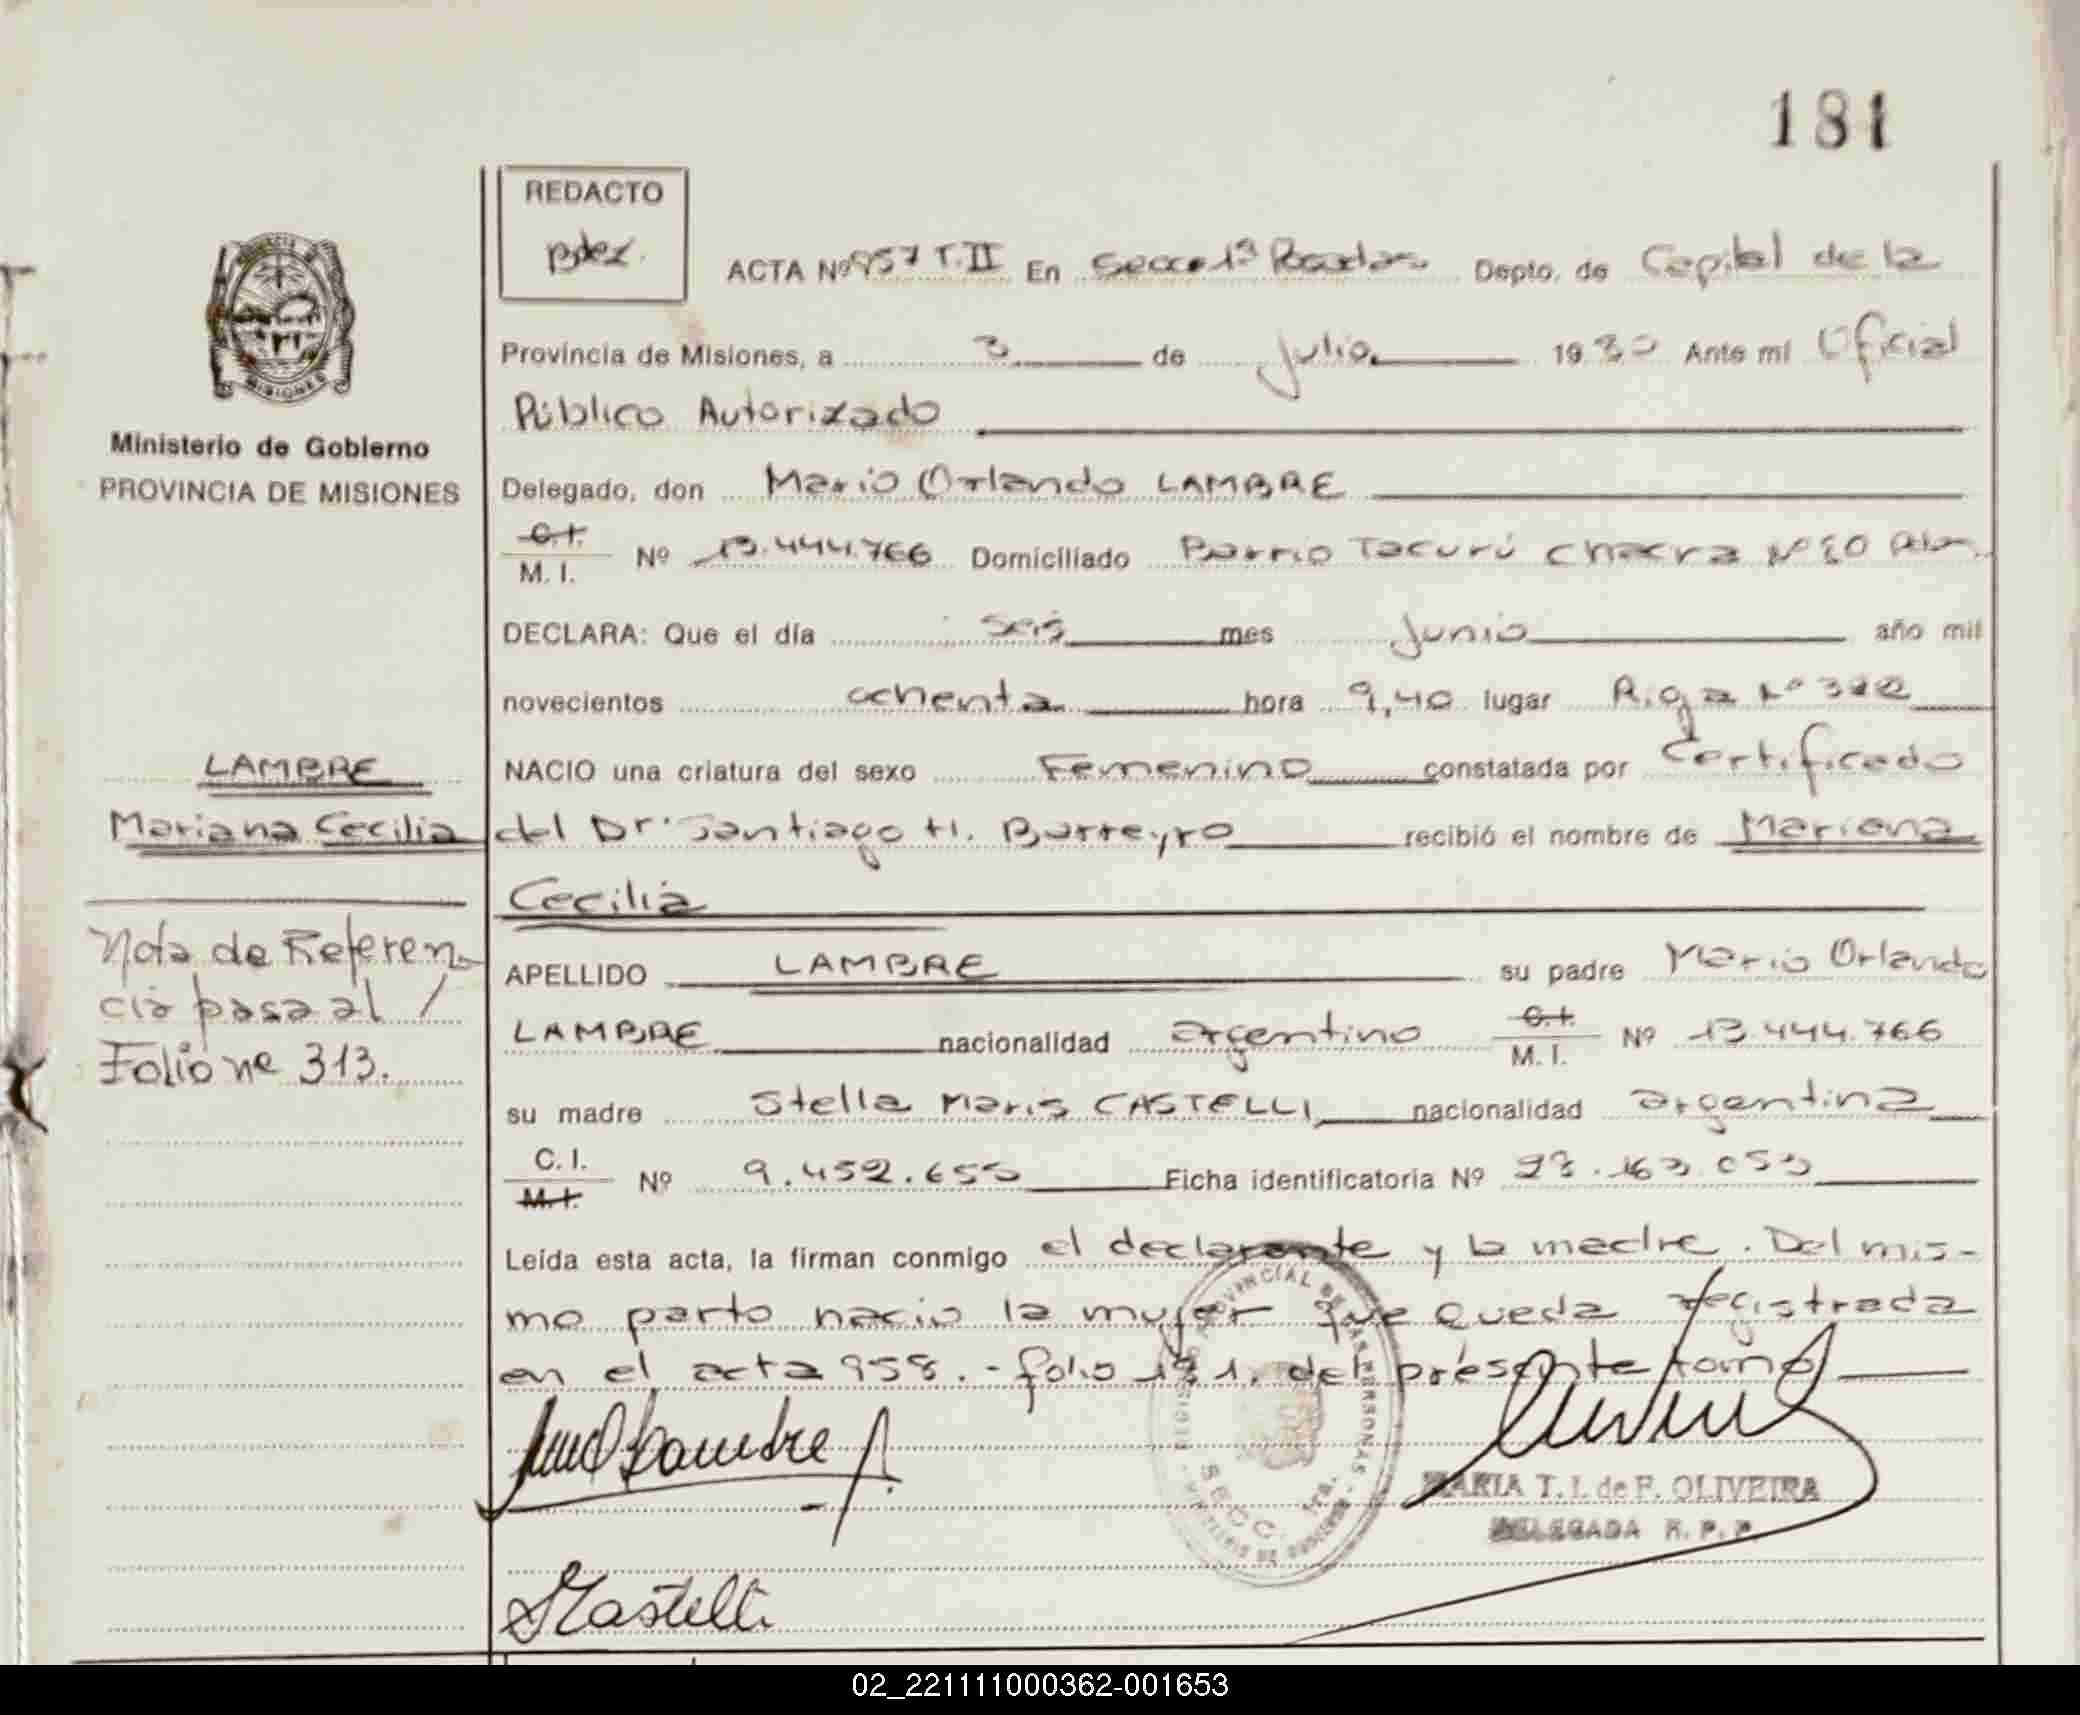 181
REDACTO
ACTA Nº 957 T.II En Secc 1ª Posadas Depto. de Capital de la
Provincia de Misiones, a 3 de Julio 1980 Ante mi Oficial
Público Autorizado
Ministerio de Gobierno
PROVINCIA DE MISIONES
Delegado, don Mario Orlando LAMBRE
C.I. M. I. Nº 13.444.766 Domiciliado Barrio Tacurú Chacra Nº
DECLARA: Que el día seis mes Junio año mil
novecientos ochenta hora 9,40 lugar Nº
NACIO una criatura del sexo Femenino constatada por Certificado
del Dr. Santiago H. Barreyro recibió el nombre de Mariana
Cecilia
APELLIDO LAMBRE su padre Mario Orlando
LAMBRE nacionalidad argentino C.I. M. I. Nº 13.444.766
su madre Stella Maris CASTELLI nacionalidad argentina
C. I. M.I. Nº 9.452.655 Ficha identificatoria Nº
Leída esta acta, la firman conmigo el declarante y la madre. Del mis-
mo parto nacio la mujer que queda registrada
en el acta 958.- folio 181. del presente tomo
LAMBRE
Mariana Cecilia
Nota de Referen
cia pasa al /
Folio nº 313.
MARIA T. I. de F. OLIVEIRA
DELEGADA R. P. P.
PROVINCIAL DE LAS PERSONAS
SECC. 1ra.
MISIONES
02_221111000362-001653